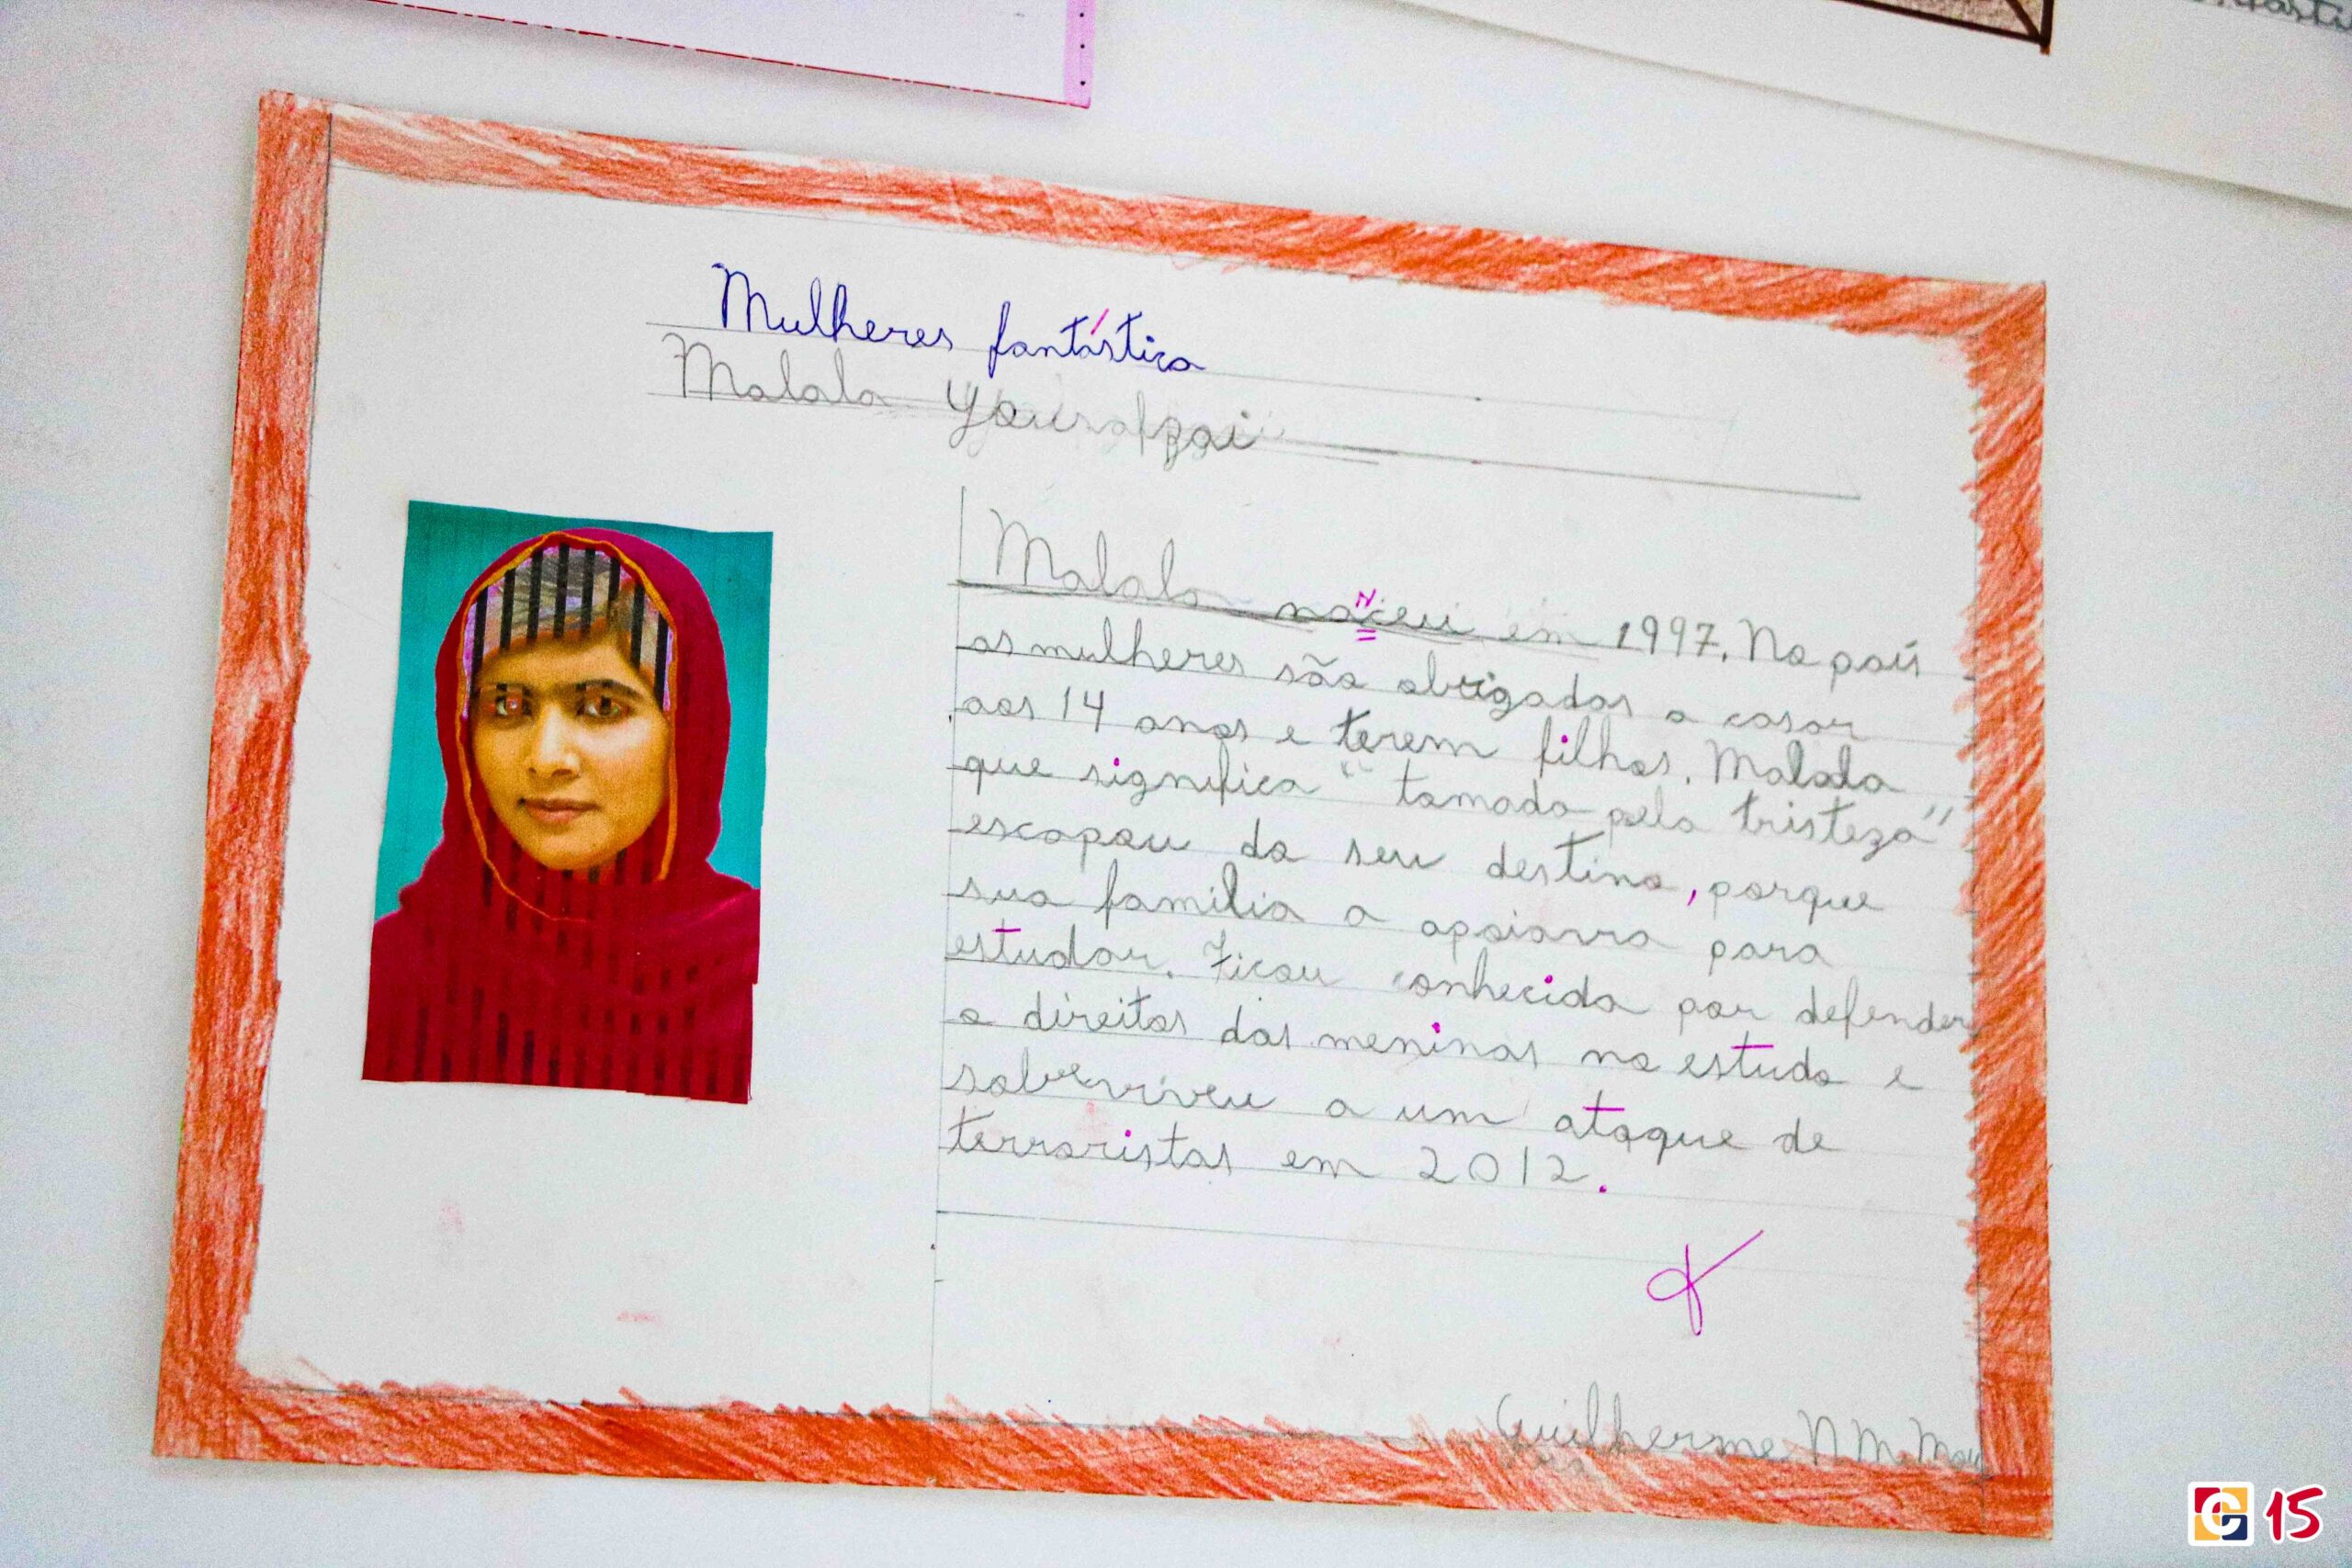 Mulheres fantástica
Malala Yousafzai
Malala naceu em 1997. No país
as mulheres são obrigadas a casar
aos 14 anos e terem filhos. Malala
que significa "tomada pela tristeza"
escapou do seu destino, porque
sua familia a apoiava para
estudar. Ficou conhecida por defender
o direitos das meninas no estudo e
sobreviveu a um ataque de
terroristas em 2012.
Guilherme N. M.
15